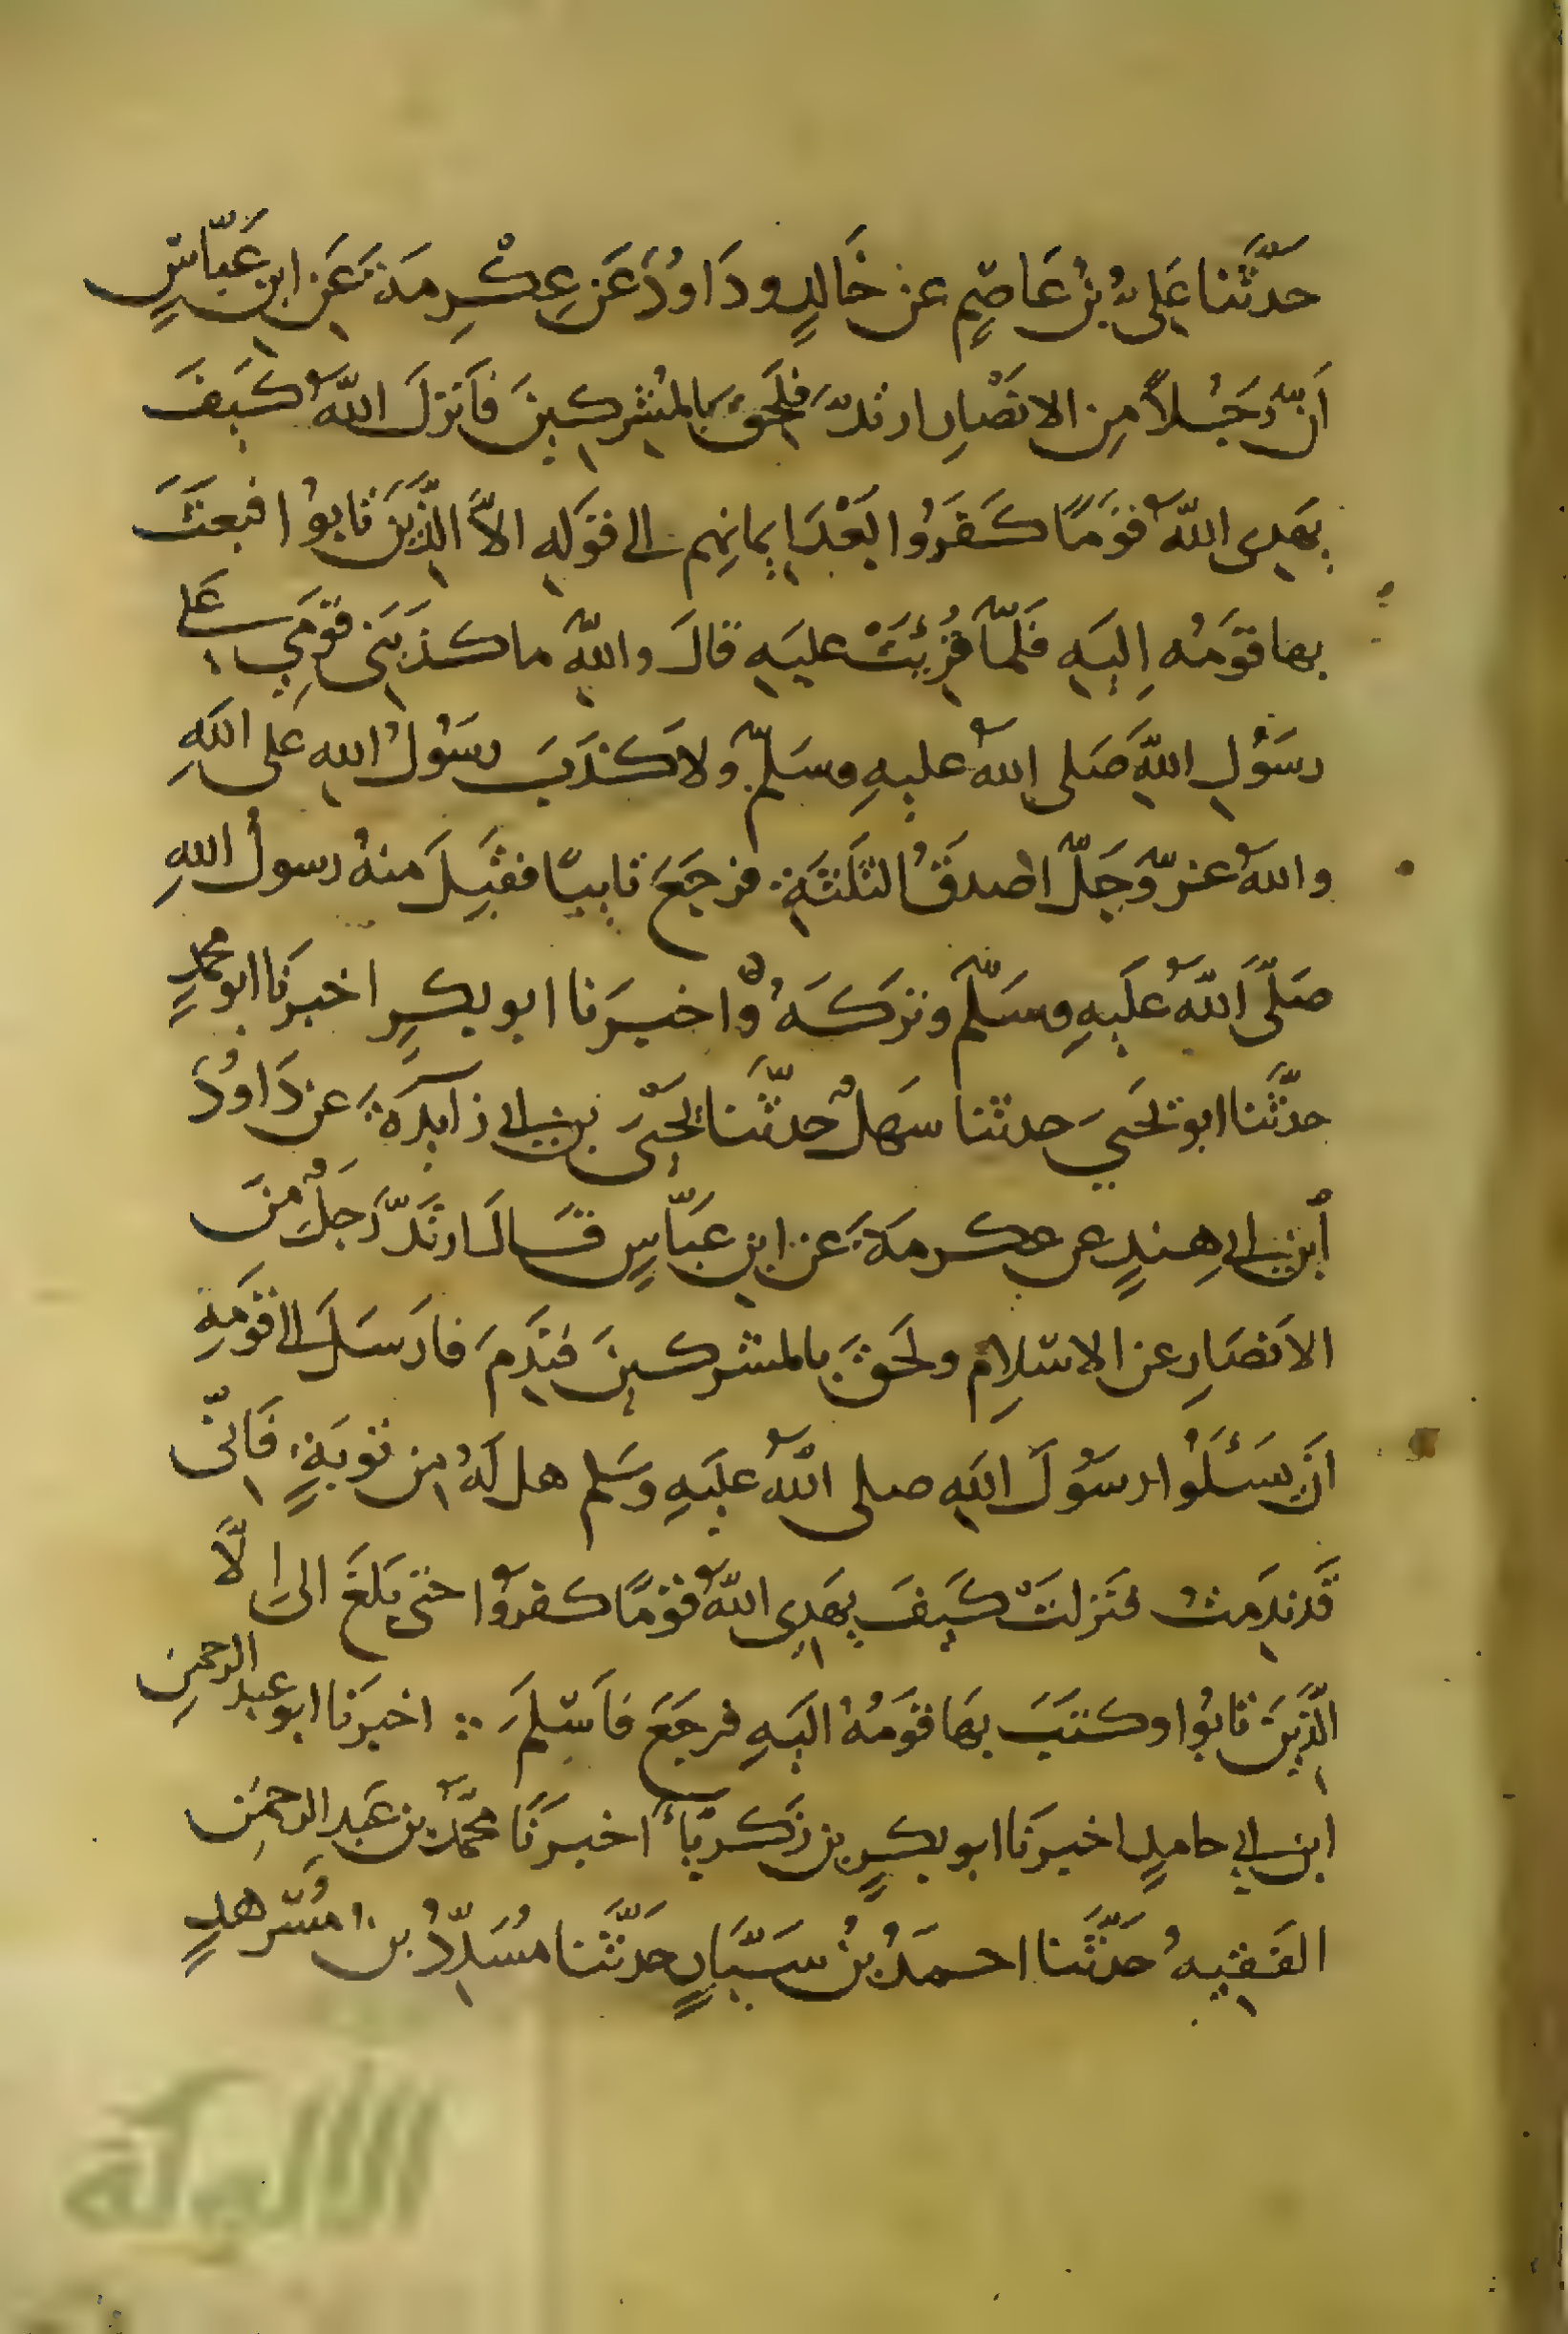 حَدَّثَنا عَلِىُّ بْنُ عَاصِمٍ عن خَالدٍ ودَاوُدَ عَن عِكْرِمَةَ عَنِ ابنِ عَبّاسٍ
اَنَّ رَجُلاً مِن الانصَارِ ارتدَّ فلَحِقَ بِالمُشرِكينَ فَاَنزلَ اللّهُ كَيفَ
يهَدِى اللّهُ قَومًا كَفَرُوا بَعْدَ اِيمانِهِم الى قَولِهِ الاَّ الَّذِينَ تَابوُا فبعثَ
بها قَومُه اِليهِ فلَمّا قُرِئَتْ عليهِ قالَ واللّهِ ما كذَبَنِى قومِي على
رسَوُلِ اللّهِ صَلى اللهُ عليهِ وسَلّم ولا كَذَبَ رسَوُلُ اللهِ عَلى اللهِ
واللهُ عزّ وَجَلّ اصدقُ الثلثَةِ فرجَعَ تايبًا فقبِلَ منهُ رسولُ اللهِ
صَلَّى اللّهُ عَليهِ وسَلّم وتركَهُ واخبرَنا ابو بكرٍ اخبرَنا ابو محمدٍ
حدَّثَنا ابو يَحيَي حدثنا سَهلٌ حدثَّنا يَحيَى بن ابى زآيدَةَ عن دَاوُدَ
اُبن ابى هِندٍ عن عكرمةَ عن ابنِ عَبّاسٍ قَالَ ارتَدَّ رَجلٌ مِنَ
الاَنصَارِ عن الاسلامِ ولَحَقَ بالمشركينَ فنَدِمَ فارَسَلَ الى قَومِهِ
اَنْ سَئَلُوا رسَوُلَ اللهِ صلى اللّهُ عليَهِ وسَلم هل لَهُ مِن توبَةٍ فَانّى
قَد ندِمَتُ فنَزلتَ كَيفَ يهَدِى اللّهُ قومًا كفروُا حتى بلَغَ الى اِلَّا
الَّذِينَ تابوُا وكتبَ بهَا قَومُهُ اليهِ فرجَعَ فاَسلمَ ∴ اخبرَنا ابو عبد الرحمنِ
ابن ابي حامدٍ اخبرَنا ابو بكرِ بن زَكرياَّءَ اخبرَنَا محمَّدُ بن عَبدِ الرحمنِ
الفَقيهُ حَدَّثَنا احمدُ بنُ سَيَّارٍ حَدَّثَنا مُسَدّدُ بنُ مُسَرهدٍ
الألوكة